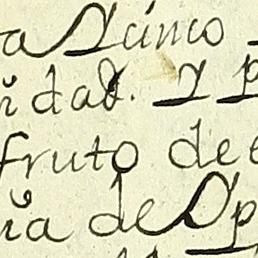 a Y cinco
ñ dad. Y p
fruto de
ña de Op